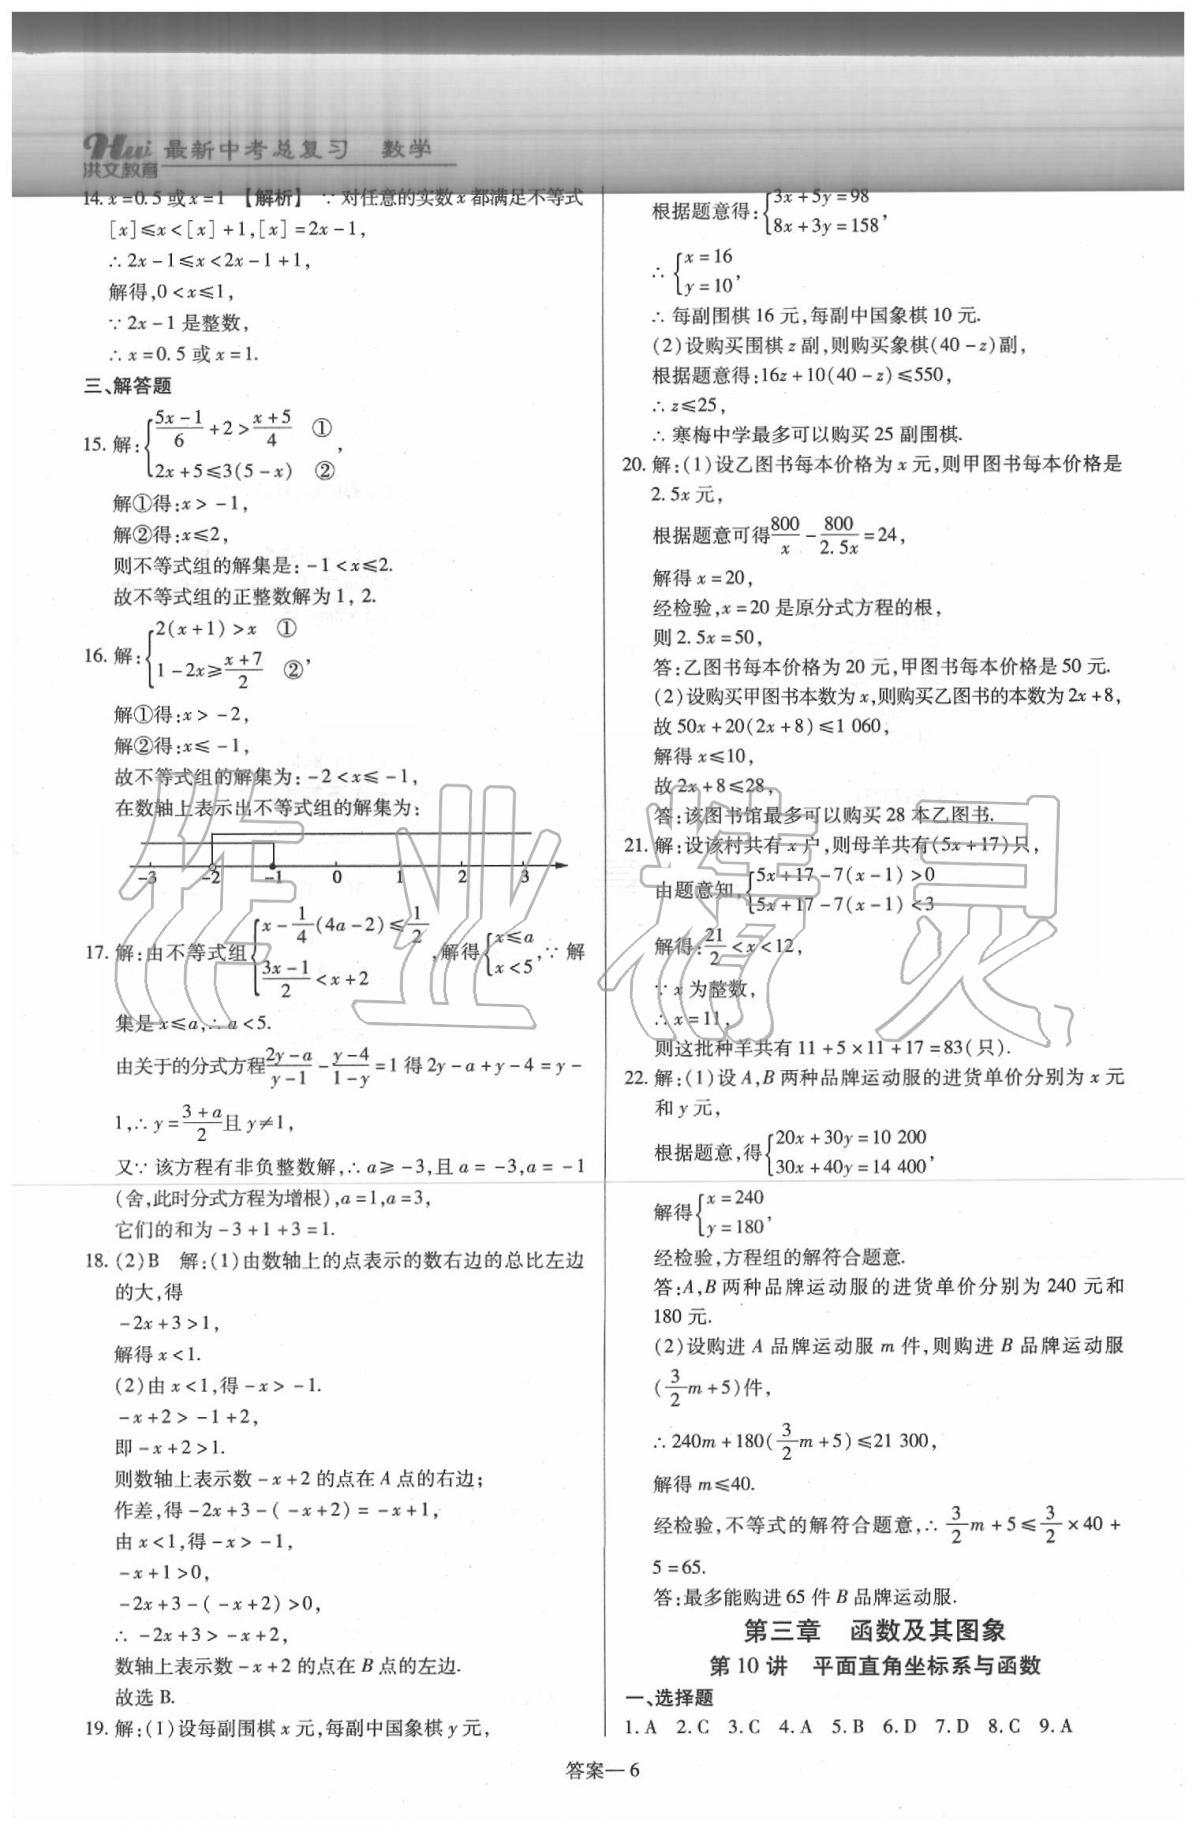 Hui 最新中考总复习 数学
洪文教育
14. x=0.5或x=1 【解析】 ∵对任意的实数x都满足不等式
[x]≤x<[x]+1,[x]=2x-1,
∴2x-1≤x<2x-1+1,
解得,0<x≤1,
∵2x-1是整数,
∴x=0.5或x=1.
三、解答题
15. 解:{(5x-1)/6+2>(x+5)/4 ①
2x+5≤3(5-x) ②,
解①得:x>-1,
解②得:x≤2,
则不等式组的解集是:-1<x≤2.
故不等式组的正整数解为1,2.
16. 解:{2(x+1)>x ①
1-2x≥(x+7)/2 ②,
解①得:x>-2,
解②得:x≤-1,
故不等式组的解集为:-2<x≤-1,
在数轴上表示出不等式组的解集为:
-3 -2 -1 0 1 2 3
17. 解:由不等式组{x-1/4(4a-2)≤1/2
(3x-1)/2<x+2,解得{x≤a
x<5,∵解
集是x≤a,∴a<5.
由关于的分式方程(2y-a)/(y-1)-(y-4)/(1-y)=1得2y-a+y-4=y-
1,∴y=(3+a)/2且y≠1,
又∵该方程有非负整数解,∴a≥-3,且a=-3,a=-1
(舍,此时分式方程为增根),a=1,a=3,
它们的和为-3+1+3=1.
18. (2)B 解:(1)由数轴上的点表示的数右边的总比左边
的大,得
-2x+3>1,
解得x<1.
(2)由x<1,得-x>-1.
-x+2>-1+2,
即-x+2>1.
则数轴上表示数-x+2的点在A点的右边;
作差,得-2x+3-(-x+2)=-x+1,
由x<1,得-x>-1,
-x+1>0,
-2x+3-(-x+2)>0,
∴-2x+3>-x+2,
数轴上表示数-x+2的点在B点的左边.
故选B.
19. 解:(1)设每副围棋x元,每副中国象棋y元,
根据题意得:{3x+5y=98
8x+3y=158,
∴{x=16
y=10,
∴每副围棋16元,每副中国象棋10元.
(2)设购买围棋z副,则购买象棋(40-z)副,
根据题意得:16z+10(40-z)≤550,
∴z≤25,
∴寒梅中学最多可以购买25副围棋.
20. 解:(1)设乙图书每本价格为x元,则甲图书每本价格是
2.5x元,
根据题意可得800/x-800/2.5x=24,
解得x=20,
经检验,x=20是原分式方程的根,
则2.5x=50,
答:乙图书每本价格为20元,甲图书每本价格是50元.
(2)设购买甲图书本数为x,则购买乙图书的本数为2x+8,
故50x+20(2x+8)≤1 060,
解得x≤10,
故2x+8≤28,
答:该图书馆最多可以购买28本乙图书.
21. 解:设该村共有x户,则母羊共有(5x+17)只,
由题意知,{5x+17-7(x-1)>0
5x+17-7(x-1)<3
解得:21/2<x<12,
∵x为整数,
∴x=11,
则这批种羊共有11+5×11+17=83(只).
22. 解:(1)设A,B两种品牌运动服的进货单价分别为x元
和y元,
根据题意,得{20x+30y=10 200
30x+40y=14 400,
解得{x=240
y=180,
经检验,方程组的解符合题意.
答:A,B两种品牌运动服的进货单价分别为240元和
180元.
(2)设购进A品牌运动服m件,则购进B品牌运动服
(3/2m+5)件,
∴240m+180(3/2m+5)≤21 300,
解得m≤40.
经检验,不等式的解符合题意,∴3/2m+5≤3/2×40+
5=65.
答:最多能购进65件B品牌运动服.
第三章 函数及其图象
第10讲 平面直角坐标系与函数
一、选择题
1. A 2. C 3. C 4. A 5. B 6. D 7. D 8. C 9. A
答案—6
作业精灵